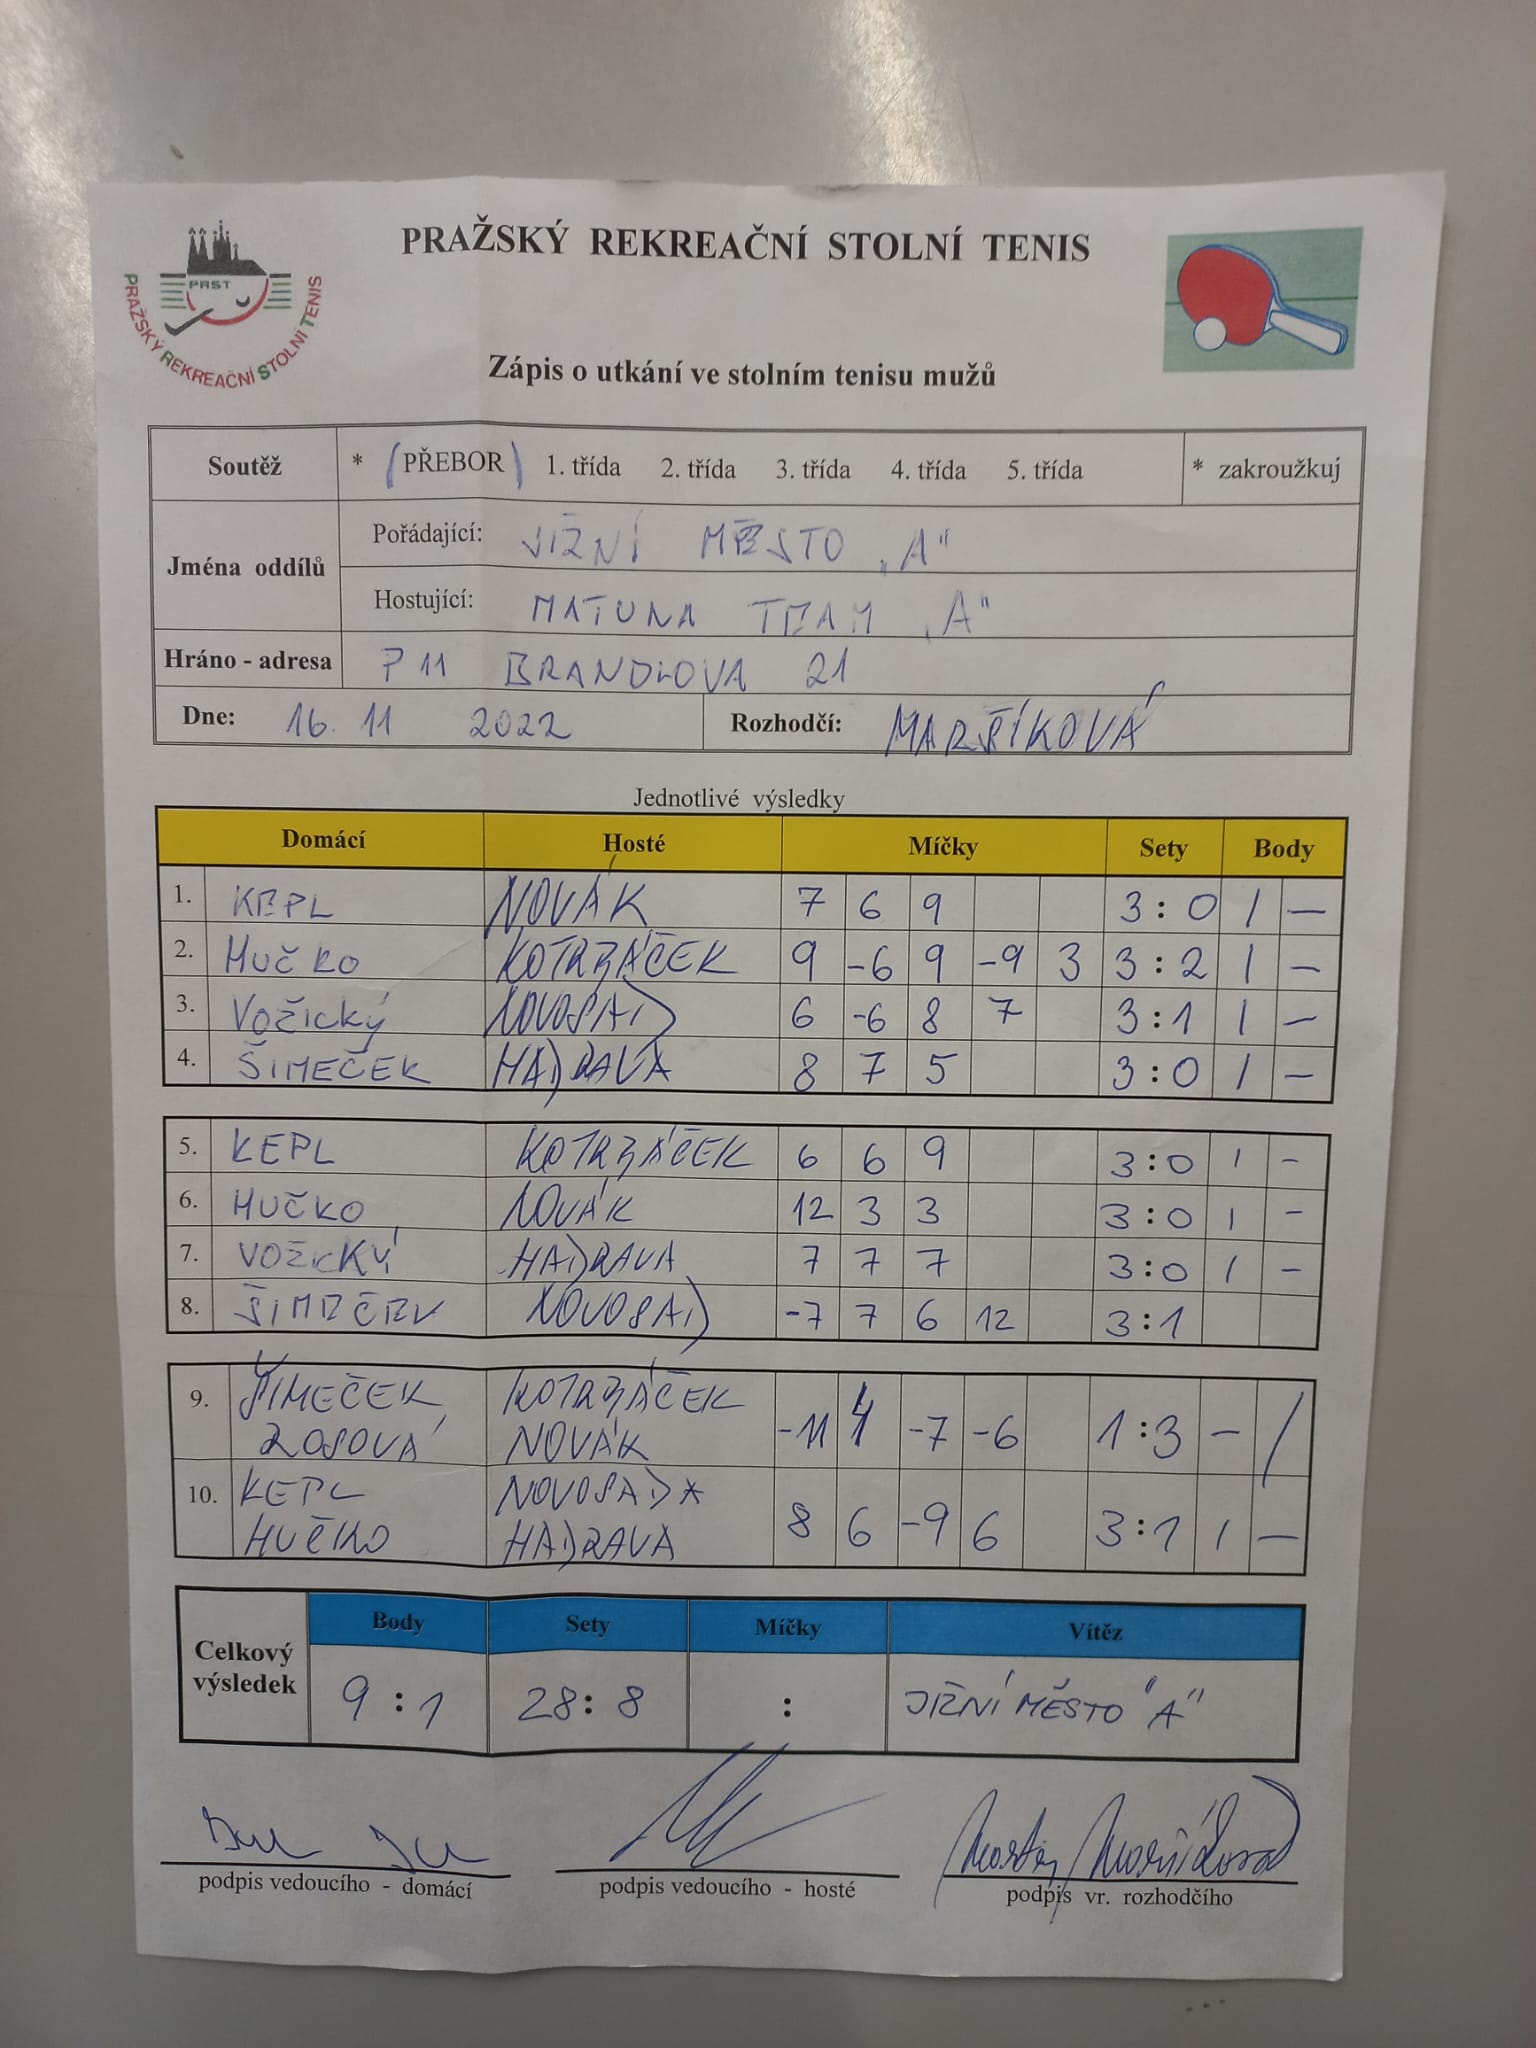 PRAŽSKÝ REKREAČNÍ STOLNÍ TENIS
PRST
PRAŽSKÝ REKREAČNÍ STOLNÍ TENIS
Zápis o utkání ve stolním tenisu mužů
Soutěž * (PŘEBOR) 1. třída 2. třída 3. třída 4. třída 5. třída * zakroužkuj
Jména oddílů
Pořádající: JIŽNÍ MĚSTO „A"
Hostující: MATUNA TEAM „A"
Hráno - adresa P 11 BRANDLOVA 21
Dne: 16. 11 2022 Rozhodčí: MARŠÍKOVÁ
Jednotlivé výsledky
Domácí Hosté Míčky Sety Body
1. KEPL NOVÁK 7 6 9 3:0 1 —
2. HUČKO KOTRZÁČEK 9 -6 9 -9 3 3:2 1 —
3. VOŽICKÝ NOVOSAD 6 -6 8 7 3:1 1 —
4. ŠIMEČEK HADRAVA 8 7 5 3:0 1 —
5. KEPL KOTRZÁČEK 6 6 9 3:0 1 -
6. HUČKO NOVÁK 12 3 3 3:0 1 -
7. VOŽICKÝ HADRAVA 7 7 7 3:0 1 -
8. ŠIMEČEK NOVOSAD -7 7 6 12 3:1
9. ŠIMEČEK KOTRZÁČEK -11 4 -7 -6 1:3 - /
ROSOVÁ NOVÁK
10. KEPL NOVOSAD * 8 6 -9 6 3:1 1 —
HUČKO HADRAVA
Celkový výsledek
Body Sety Míčky Vítěz
9:1 28:8 : JIŽNÍ MĚSTO "A"
podpis vedoucího - domácí
podpis vedoucího - hosté
podpis vr. rozhodčího